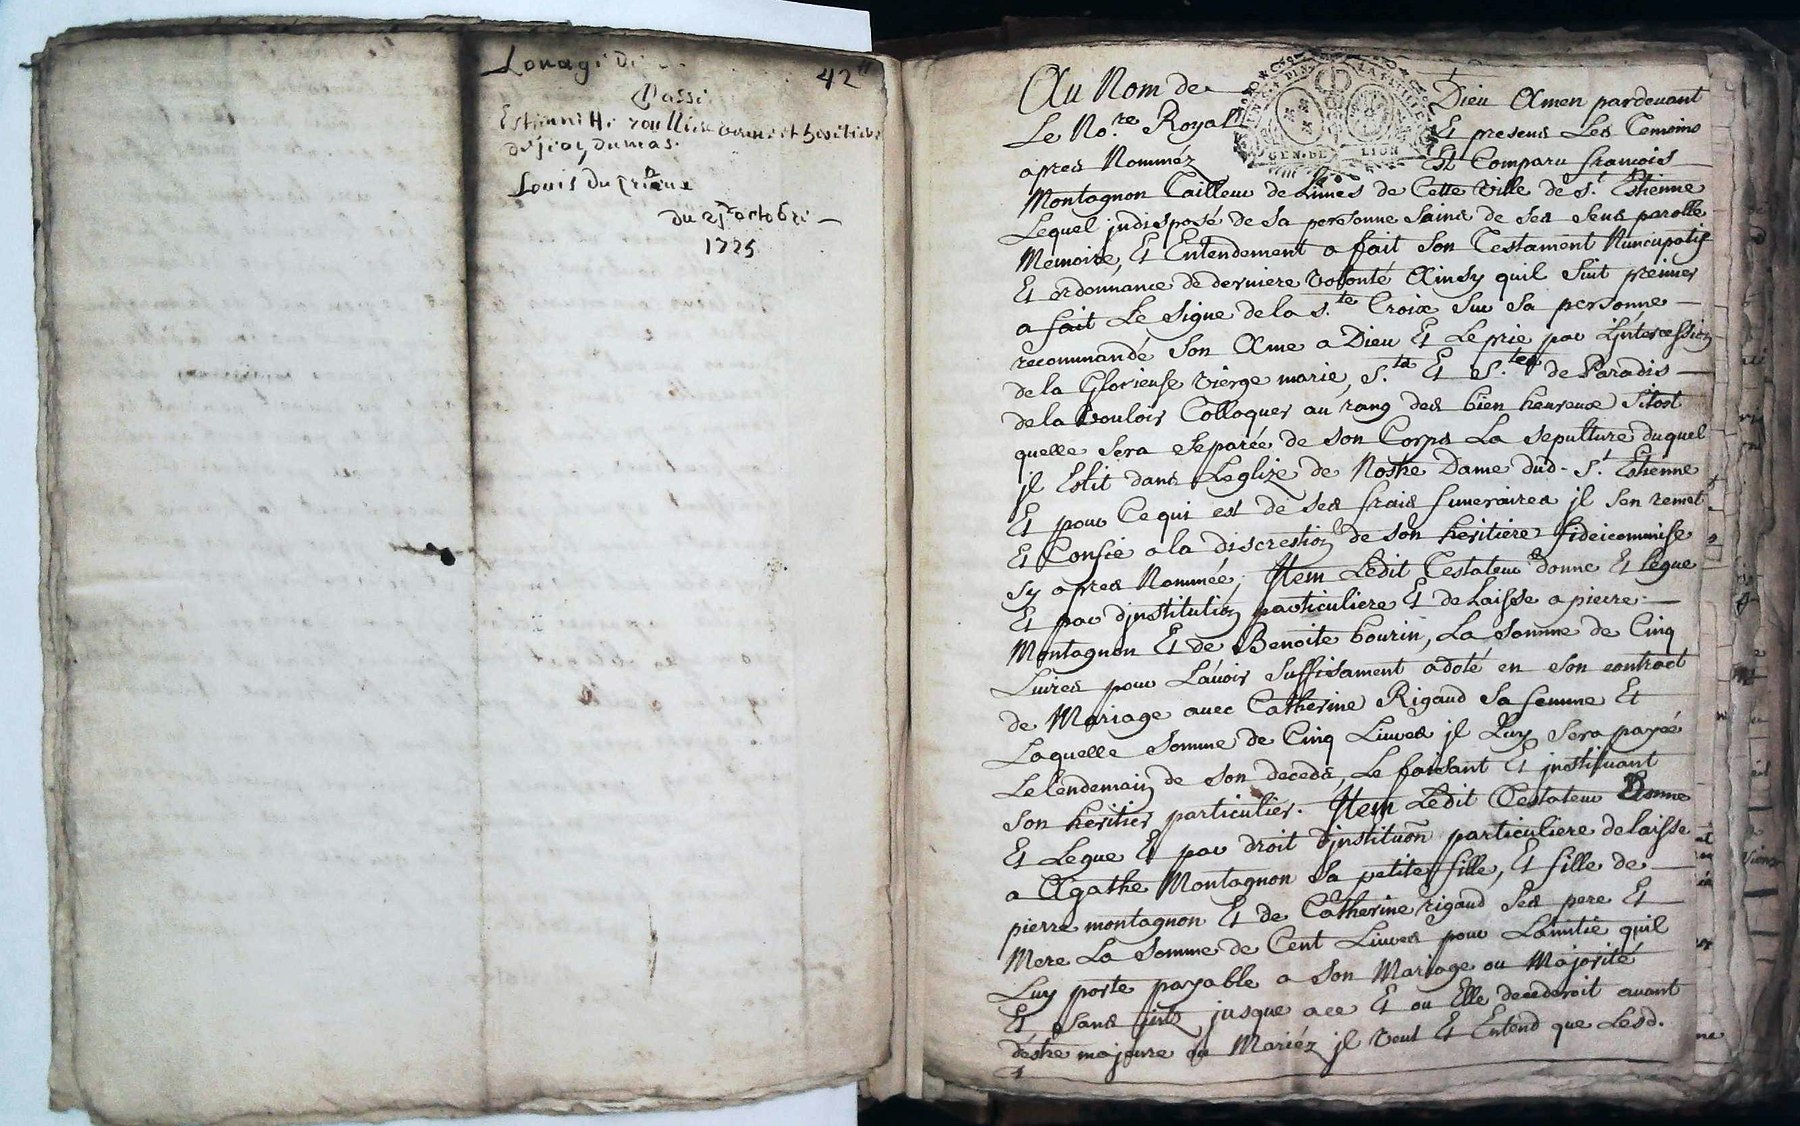 Louagé du
42
Passé
Estiennette roullier veuve et heritiere
de jean dumas.
Louis Du
du 25e octobre
1725
Au Nom de Dieu Amen pardevant
Le No.re Royal Et presens Les Temoins
apres Nomméz Est Comparu francois
GEN. DE LION
Montagnon Tailleur de Limes de Cette Ville de S.t Estienne
Lequel jndisposé de sa personne saine de ses sens parolle
Memoire, Et Entendement a fait son Testament Nuncupatif
Et ordonnance de derniere volonté Ainsy quil suit premier
a fait Le signe de la S.te Croix sur sa personne
recommandé son Ame a Dieu Et Le prie par Ljntercession
de la Glorieuse vierge marie, S.ts Et S.tes de Paradis
de la vouloir Colloquer au rang des bien heureux sitost
quelle sera separée de son Corps La sepulture duquel
jl Eslit dans Leglize de Nostre Dame dud. S.t Estienne
Et pour Ce qui est de ses frais funeraires jl sen remet
Et Confie a la discrestion de son heritiere fideicommise
sy apres Nommée, Jtem Ledit Testateur donne Et legue
Et par djnstitution particuliere Et delaisse a pierre
Montagnon Et de Benoite bourin, La somme de Cinq
Livres pour Lavoir suffisament adoté en son contract
de Mariage avec Catherine Rigaud sa femme Et
Laquelle somme de Cinq Livres jl Luy sera payée
Le lendemain de son deceds, Le faisant Et jnstituant
son heritier particulier. Jtem Ledit Testateur Donne
Et Legue Et par droit djnstituon particuliere delaisse
a Agathe Montagnon sa petite fille, Et fille de
pierre montagnon Et de Catherine rigaud ses pere Et
Mere La somme de Cent Livres pour Lamitié quil
Luy porte payable a son Mariage ou Majorité
Et sans jnts jusque a ce Et ou Elle decederoit avant
destre majeure ou Mariéz jl veut Et Entend que Lesd.